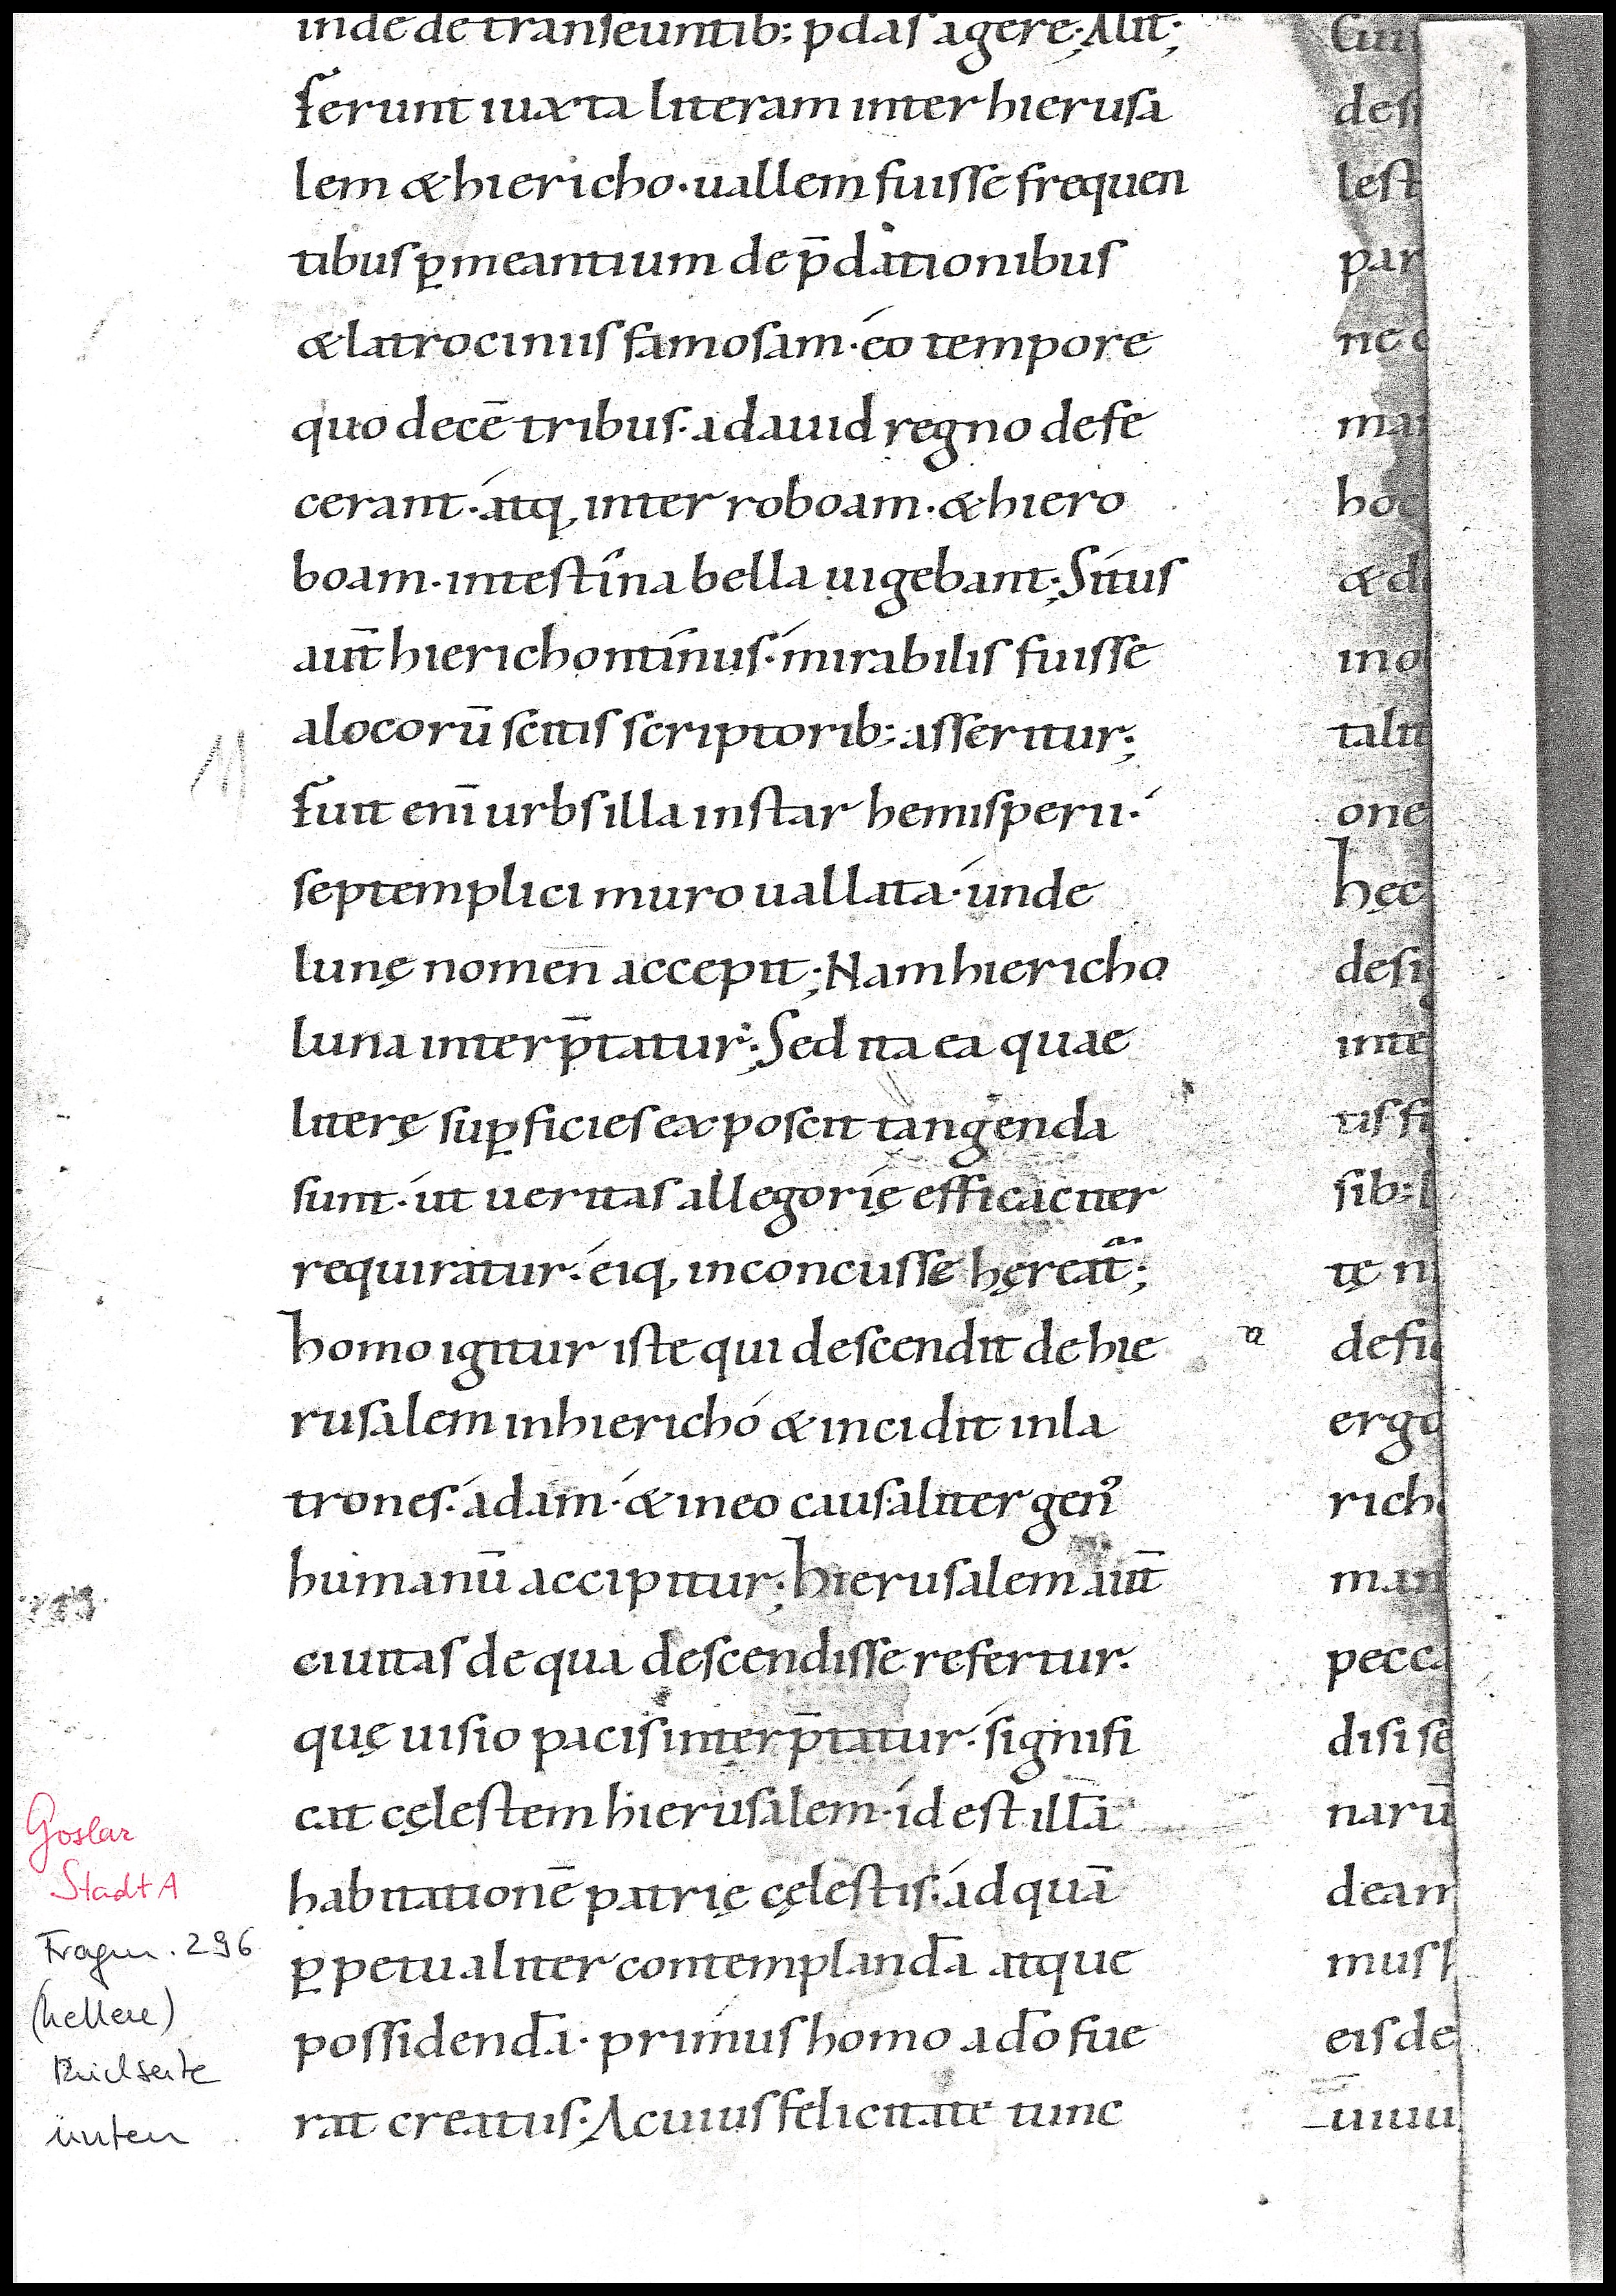 inde de transeuntib; p̄das agere; Alit;
ferunt iuxta literam inter hierusa
lem & hiericho · uallem fuisse frequen
tibus ꝑmeantium dep̄dationibus
& latrociniis famosam · éo tempore
quo decē tribus · a dauid regno defe
cerant · átq, inter roboam · & hiero
boam · intestina bella uigebant; Situs
aut̄ hierichontinus · mirabilis fuisse
a locorū scitis scriptorib; asseritur;
fuit eni̅ urbs illa instar hemisperii ·
septemplici muro uallata · únde
lunę nomen accepit; Nam hiericho
luna interp̄tatur; Sed ita ea quae
literę suꝑficies exposcit tangenda
sunt · út ueritas allegorię efficaciter
requiratur · éiq, inconcusse hęreat̄;
homo igitur iste qui descendit de hie
rusalem in hierichó & incidit in la
trones · ádam · & in eo causaliter gen᾽
humanū accipitur; hierusalem aut̄
ciuitas de qua descendisse refertur ·
quę uisio pacis interp̄tatur · signifi
cat cęlestem hierusalem · íd est illā
habitationē patrię cęlestis · ád quā
ꝑpetualiter contemplandā atque
possidendā · primus homo a do̅ fue
rat creatus · A cuius felicitate tunc
desi
lest
par
ne
ma
ho
& d
ino
talit
one
hęc
desi
inte
tis fi
sib; l
tę n
defi
ergo
rich
man
pecca
disi se
narū
dean
mus
eis de
Goslar
Stadt A
Fragm. 296
(hellere)
Rückseite
unten